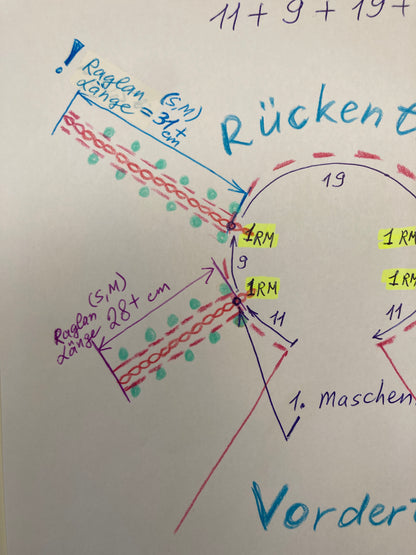 11 + 9 + 19 +
!
Raglan (S,M)
Länge = 31+
cm
Rückent
19
1RM
1RM
9
1RM
1RM
Raglan (S,M)
Länge 28+ cm
11
11
1. Maschen
Vordert